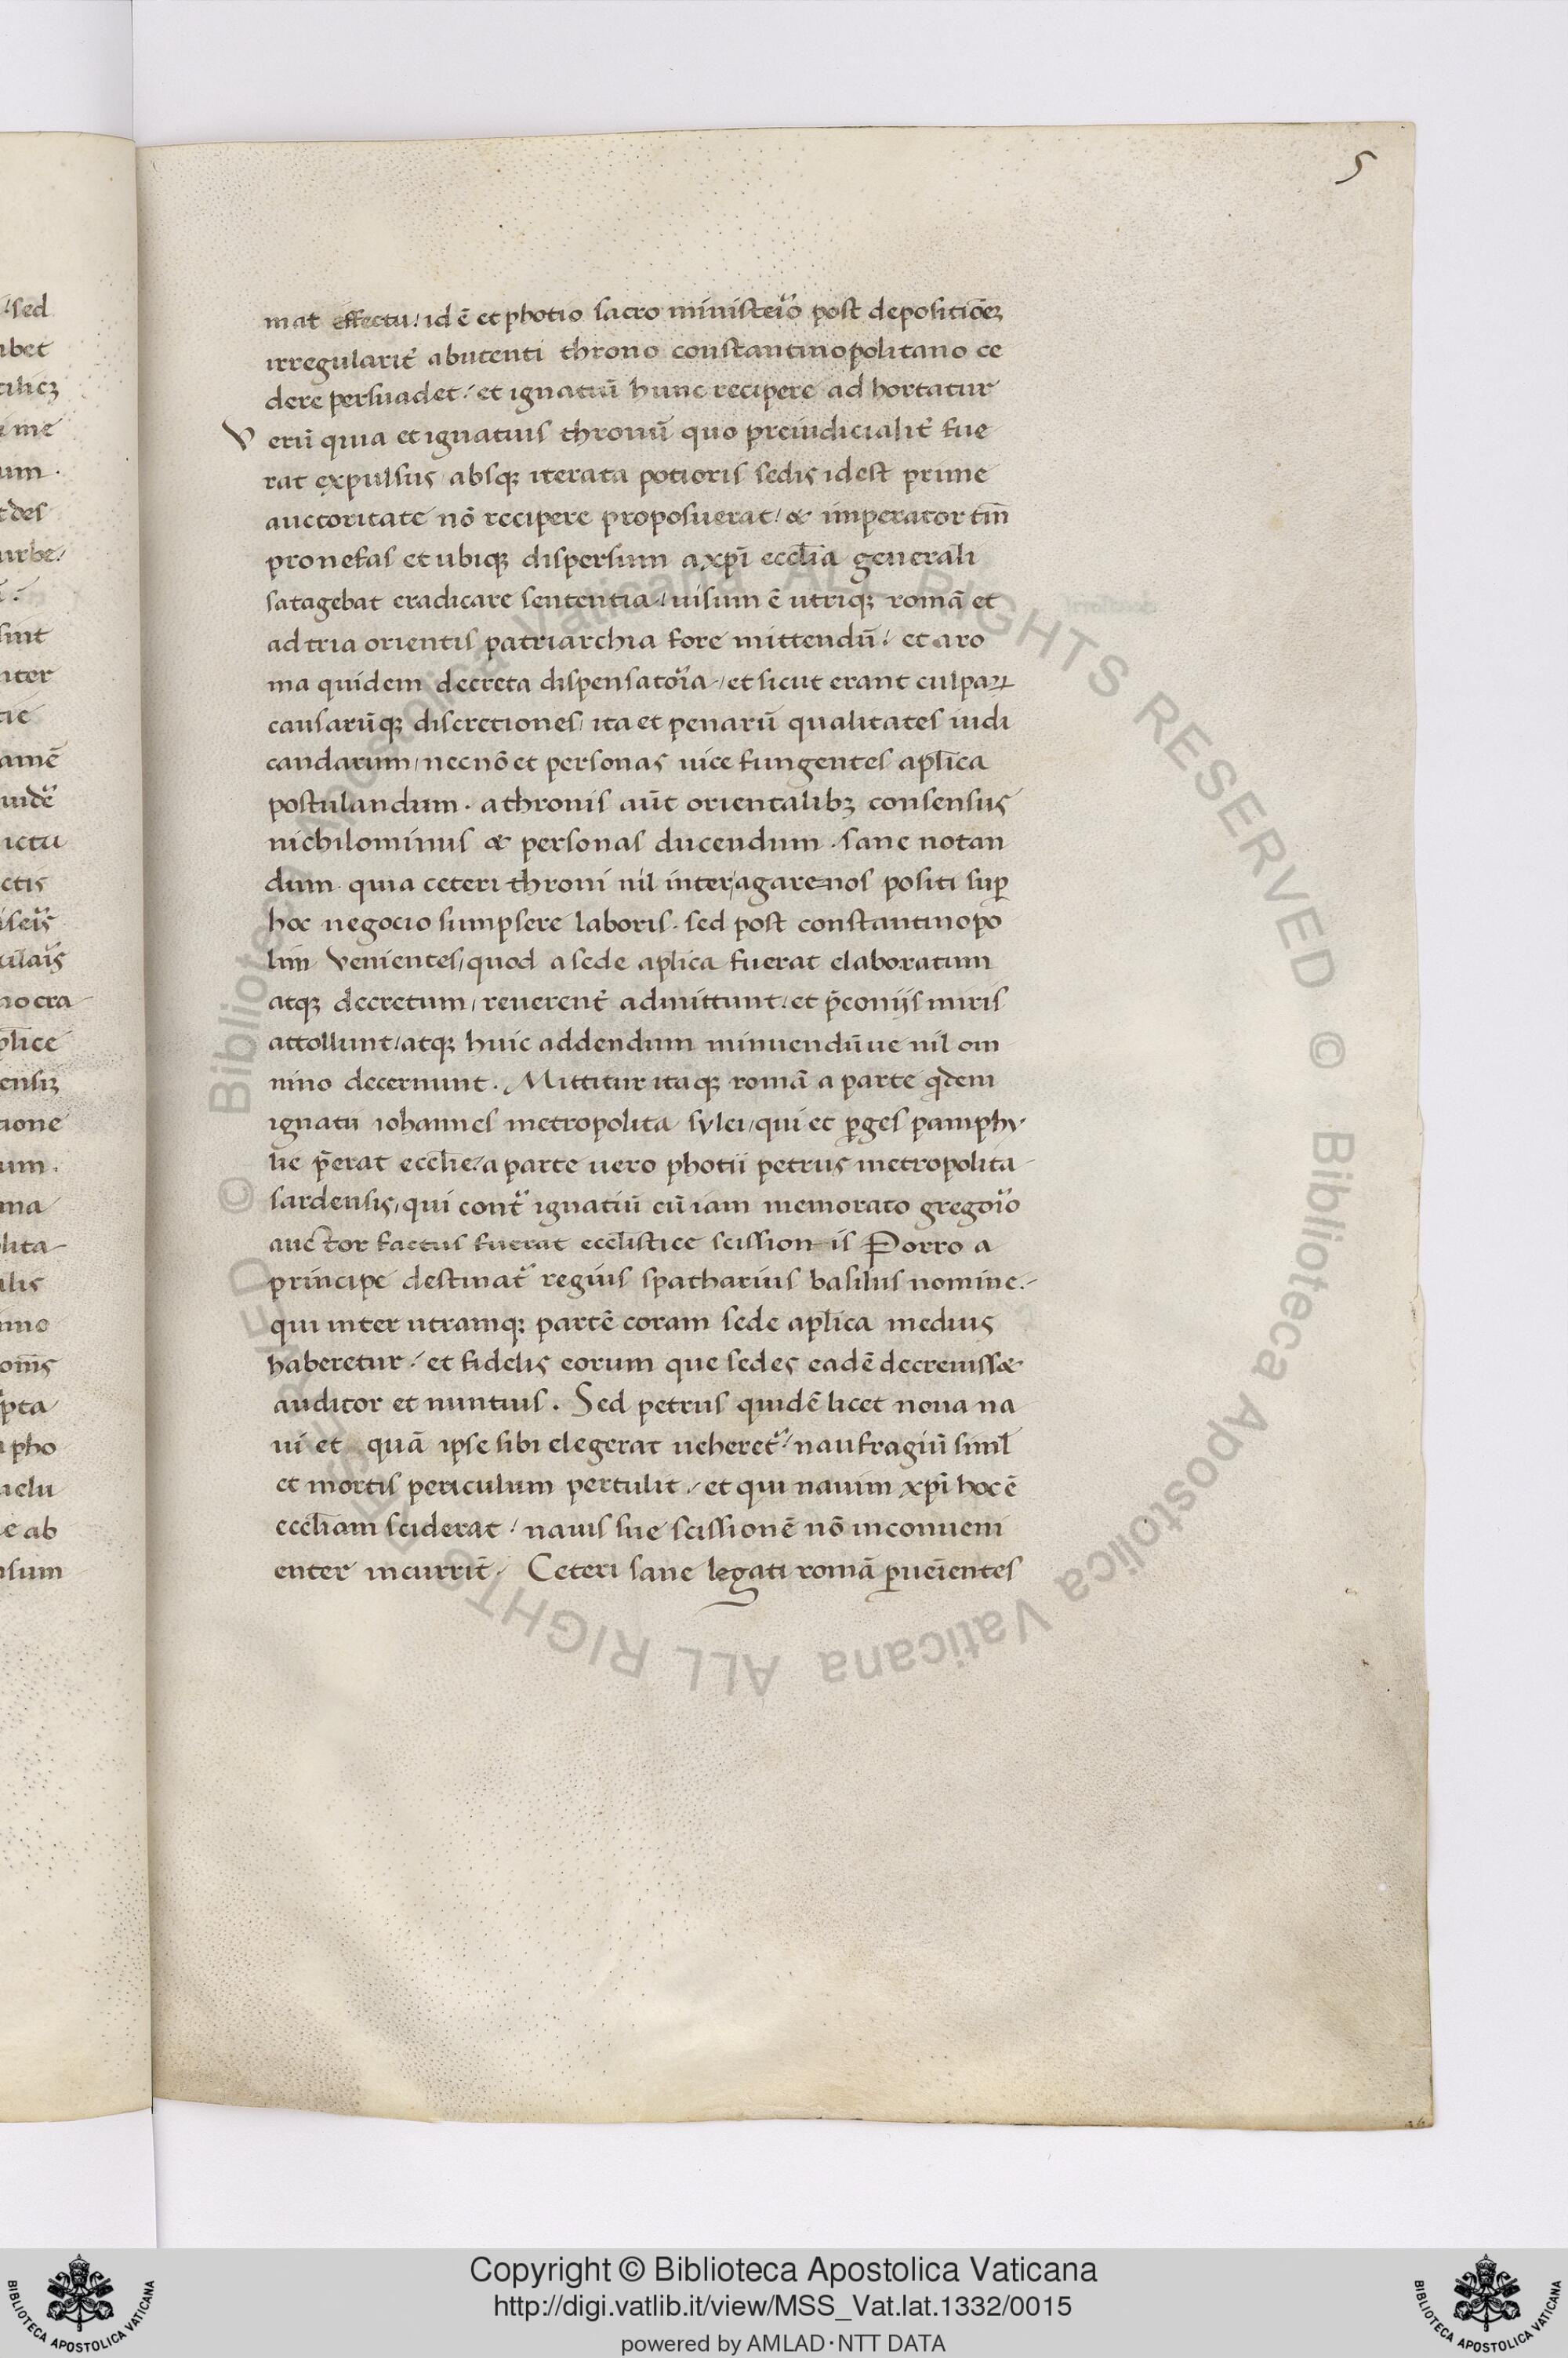 5
mat effectu. id ē et photio sacro ministeriͦ post depositiōeꝫ
irregularit̄ abutenti throno constantinopolitano ce
dere persuadet. et ignatiū hunc recipere ad hortatur
V erū quia et ignatius thronū quo preiudicialit̄ fue
rat expulsus absqꝫ iterata potioris sedis idest prime
auctoritate nō recipere proposuerat / & imperator tm̄
pronefas et ubiqꝫ dispersum a xp̄i eccl̄ia generali
satagebat eradicare sententia / uisum ē utriqꝫ romā et
ad tria orientis patriarchia fore mittendū. et a ro
ma quidem decreta dispensatoria / et sicut erant culpaꝝ
causarūqꝫ discretiones / ita et penarū qualitates iudi
candarum / necnō et personas uice fungentes apl̄ica
postulandum. a thronis aūt orientalibꝫ consensus
nichilominus & personas ducendum. sane notan
dum quia ceteri throni nil inter agarenos positi suꝑ
hoc negocio sumpsere laboris. sed post constantinopo
lim venientes / quod a sede apl̄ica fuerat elaboratum
atqꝫ decretum / reuerent̄ admittunt. et p̄conijs miris
attollunt / atqꝫ huic addendum minuendūue nil om
nino decernunt. Mittitur itaqꝫ romā a parte qͥdem
ignatii iohannes metropolita sylei / qui et ꝑges pamphy
lie p̄erat eccl̄ie. a parte uero photii petrus metropolita
sardensis, qui contͣ ignatiū cū iam memorato gregorio
auctor factus fuerat eccl̄istice scission is Porro a
principe destinat᷑ regius spatharius basilius nomine.
qui inter utramqꝫ partē coram sede apl̄ica medius
haberetur. et fidelis eorum que sedes eadē decreuiss&
auditor et nuntius. Sed petrus quidē licet noua na
ui et quā ipse sibi elegerat ueheret᷑. naufragiū siml̄
et mortis periculum pertulit. et qui nauim xp̄i hoc ē
eccl̄iam sciderat / nauis sue scissionē nō inconueni
enter incurrit̄. Ceteri sane legati romā ꝑueīentes
Copyright © Biblioteca Apostolica Vaticana
http://digi.vatlib.it/view/MSS_Vat.lat.1332/0015
powered by AMLAD·NTT DATA